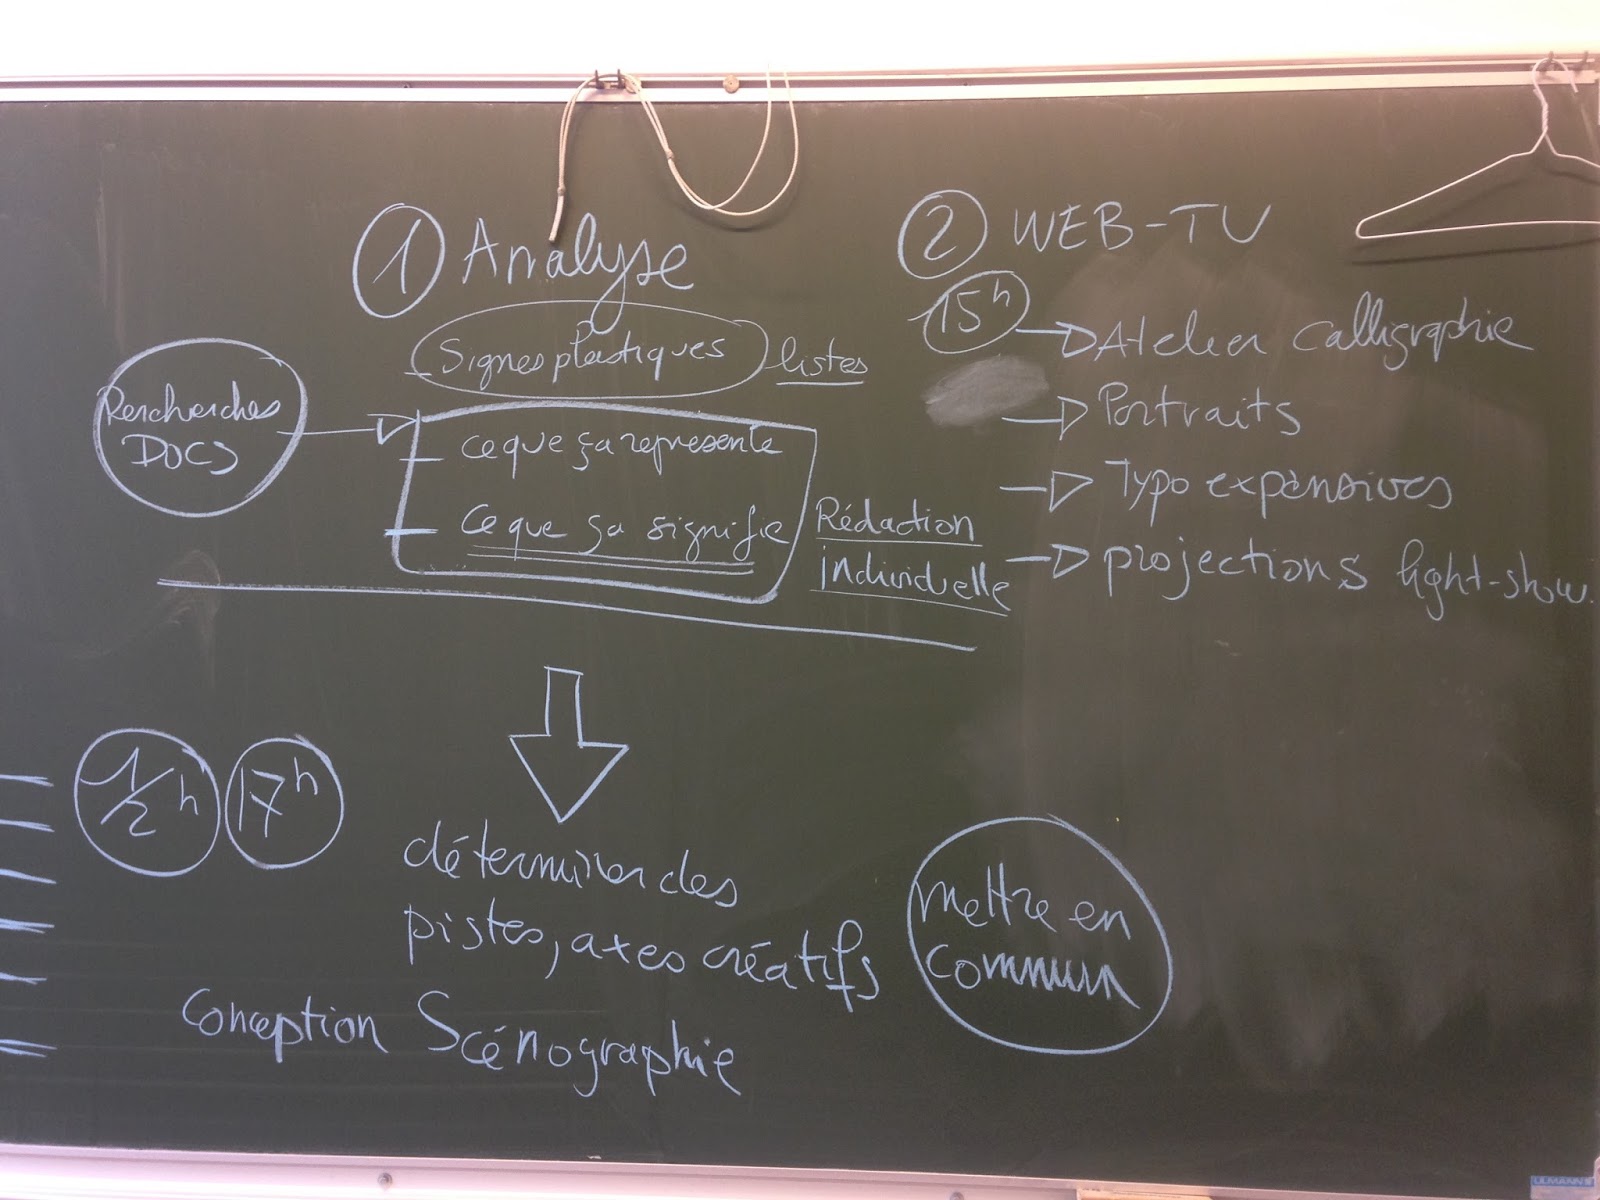 1 Analyse
Signes plastiques listes
Rercherches
DOCS
ce que ça représente
ce que ça signifie
Rédaction
individuelle
2 WEB-TV
15h
Atelier calligraphie
Portraits
Typo expansives
projections light-show.
1/2 h 17h
déterminer des
pistes, axes créatifs
Conception Scénographie
mettre en
commun
ULMANN